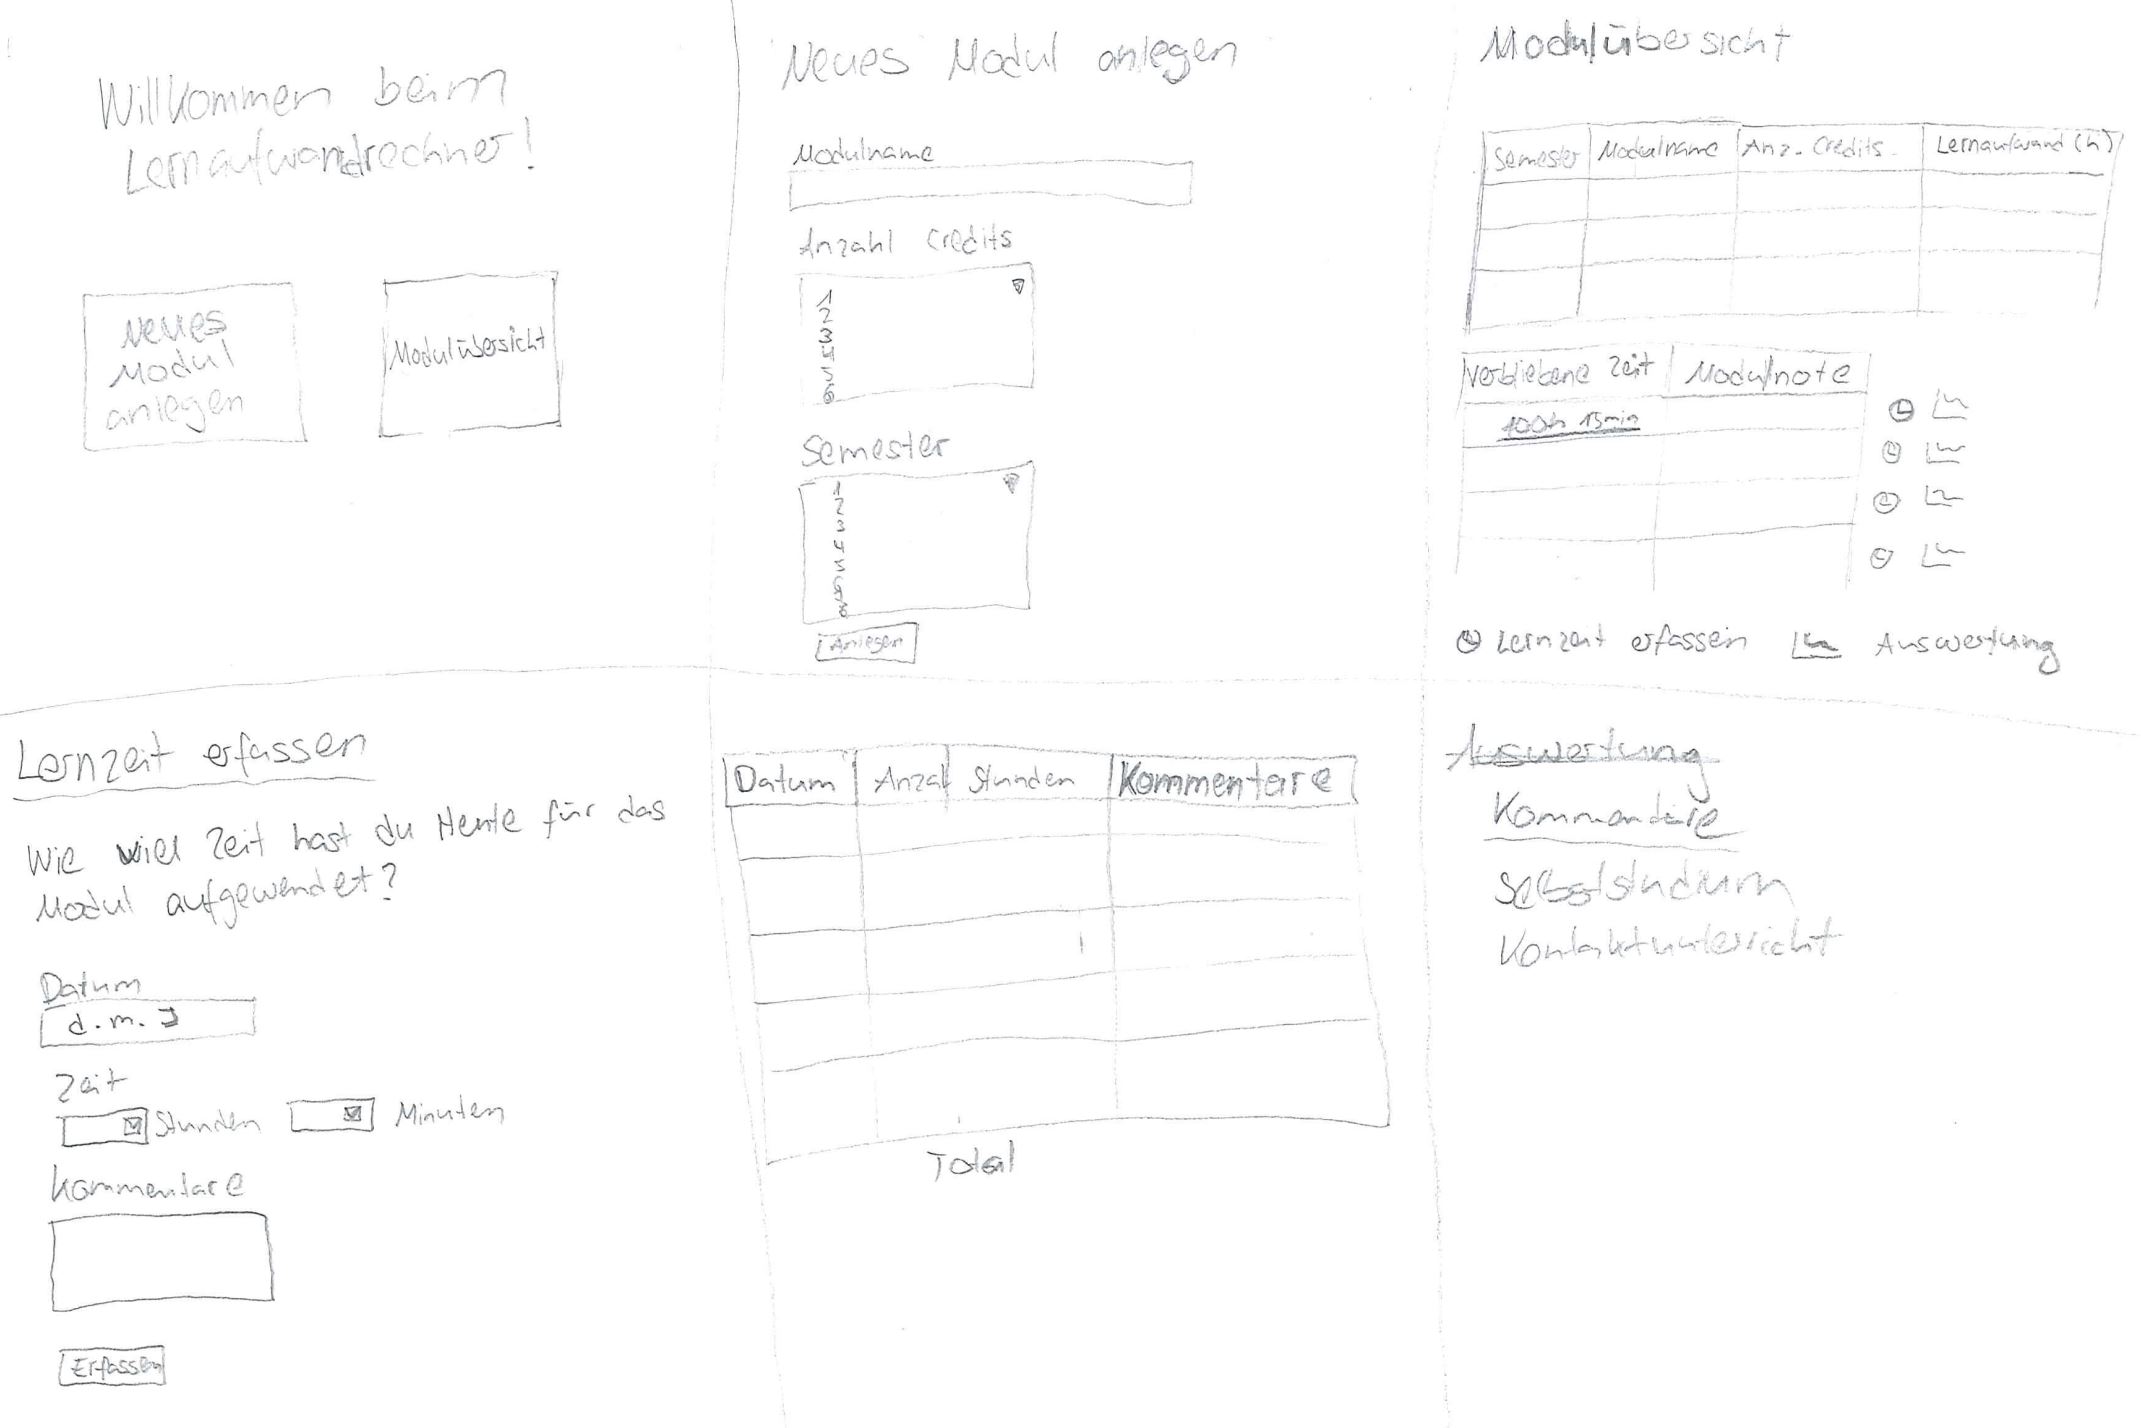 Willkommen beim
Lernaufwandrechner!
Neues
Modul
anlegen
Modulübersicht
Neues Modul anlegen
Modulname
Anzahl Credits
1
2
3
4
5
6
Semester
1
2
3
4
5
6
Anlegen
Modulübersicht
Semester Modulname Anz. Credits Lernaufwand (h)
Verbliebene Zeit Modulnote
100h 15min
Lernzeit erfassen Auswertung
Lernzeit erfassen
Wie viel Zeit hast du Heute für das
Modul aufgewendet?
Datum
d.m.J
Zeit
Stunden Minuten
Kommentare
Erfassen
Datum Anzal Stunden Kommentare
Total
Auswertung
Kommentare
Selbststudium
Kontaktunterricht